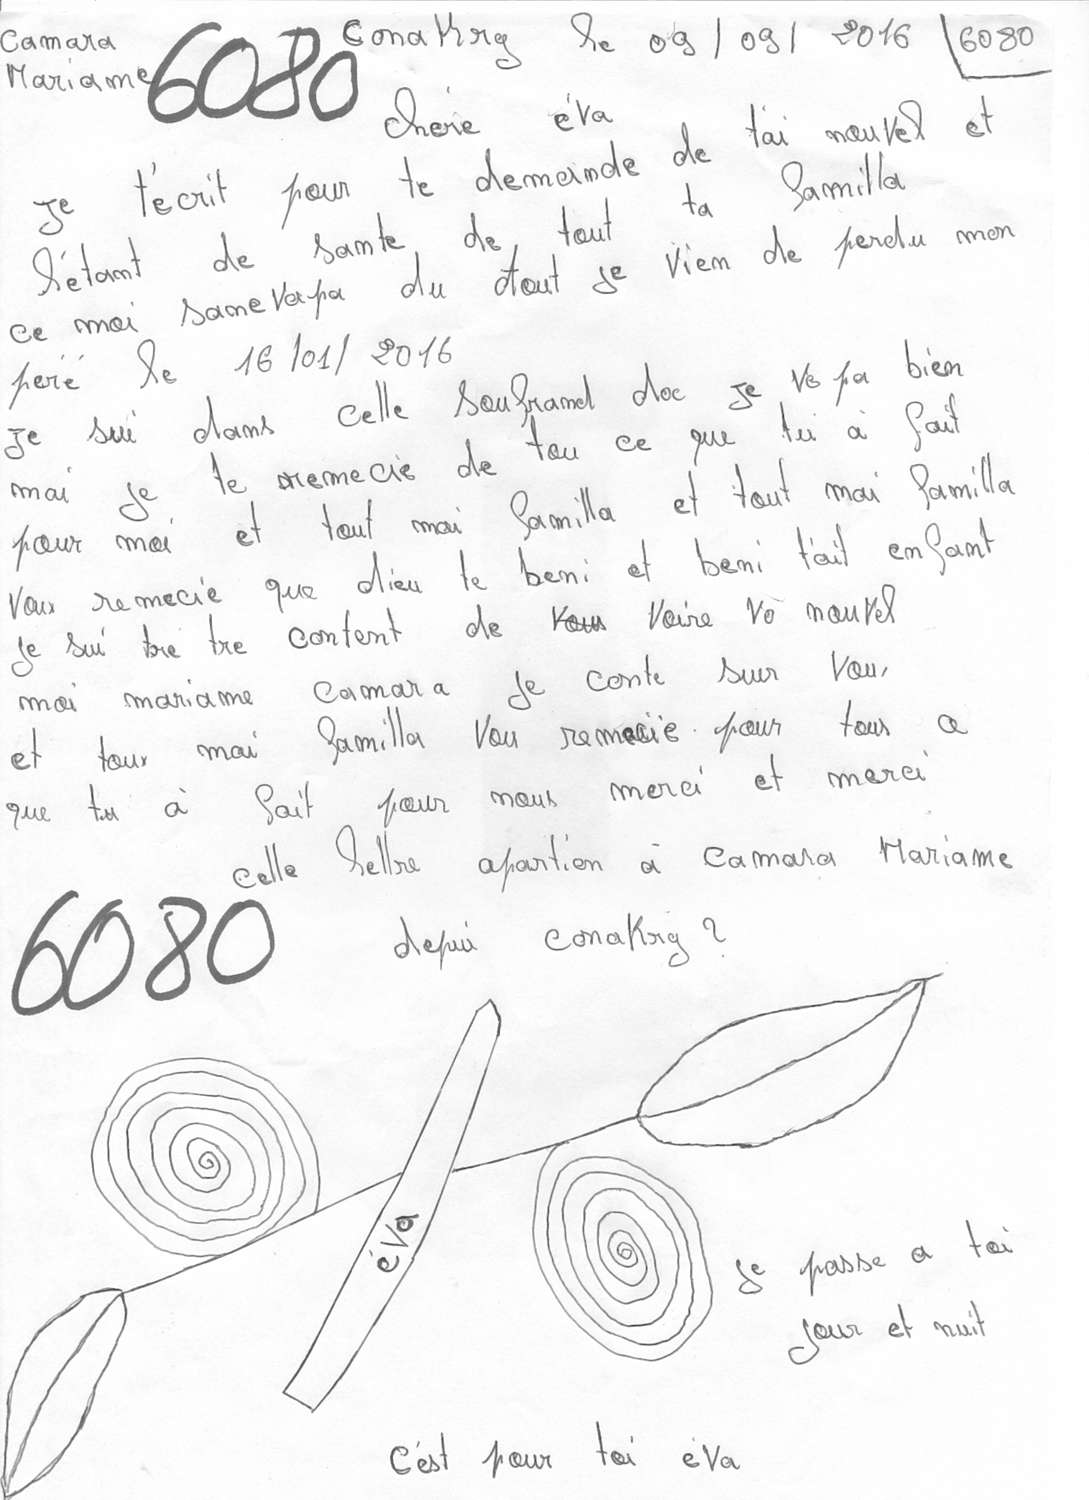 Camara Conakry le 09/09/2016 6080
Mariame 6080
Cherie éva
je t'ecrit pour te demande de t'ai nouvel et
l'étant de sante de tout ta familla
ce moi saneva pa du tout je vien de perdu mon
peré le 16/01/2016
je sui dans celle soufrand doc je ve pa bien
mai je te remecie de tou ce que tu à fait
pour moi et tout mai familla et tout mai familla
vous remecie que dieu te beni et beni t'ait enfant
je sui tre tre content de vous voire vo nouvel
moi mariame camara je conte suur vou,
et tous mai familla vou remecie pour tous ce
que tu à fait pour nous merci et merci
celle lettre apartien à camara Mariame
6080 depui conakry ?
éva
je passe a toi
jour et nuit
c'est pour toi éva